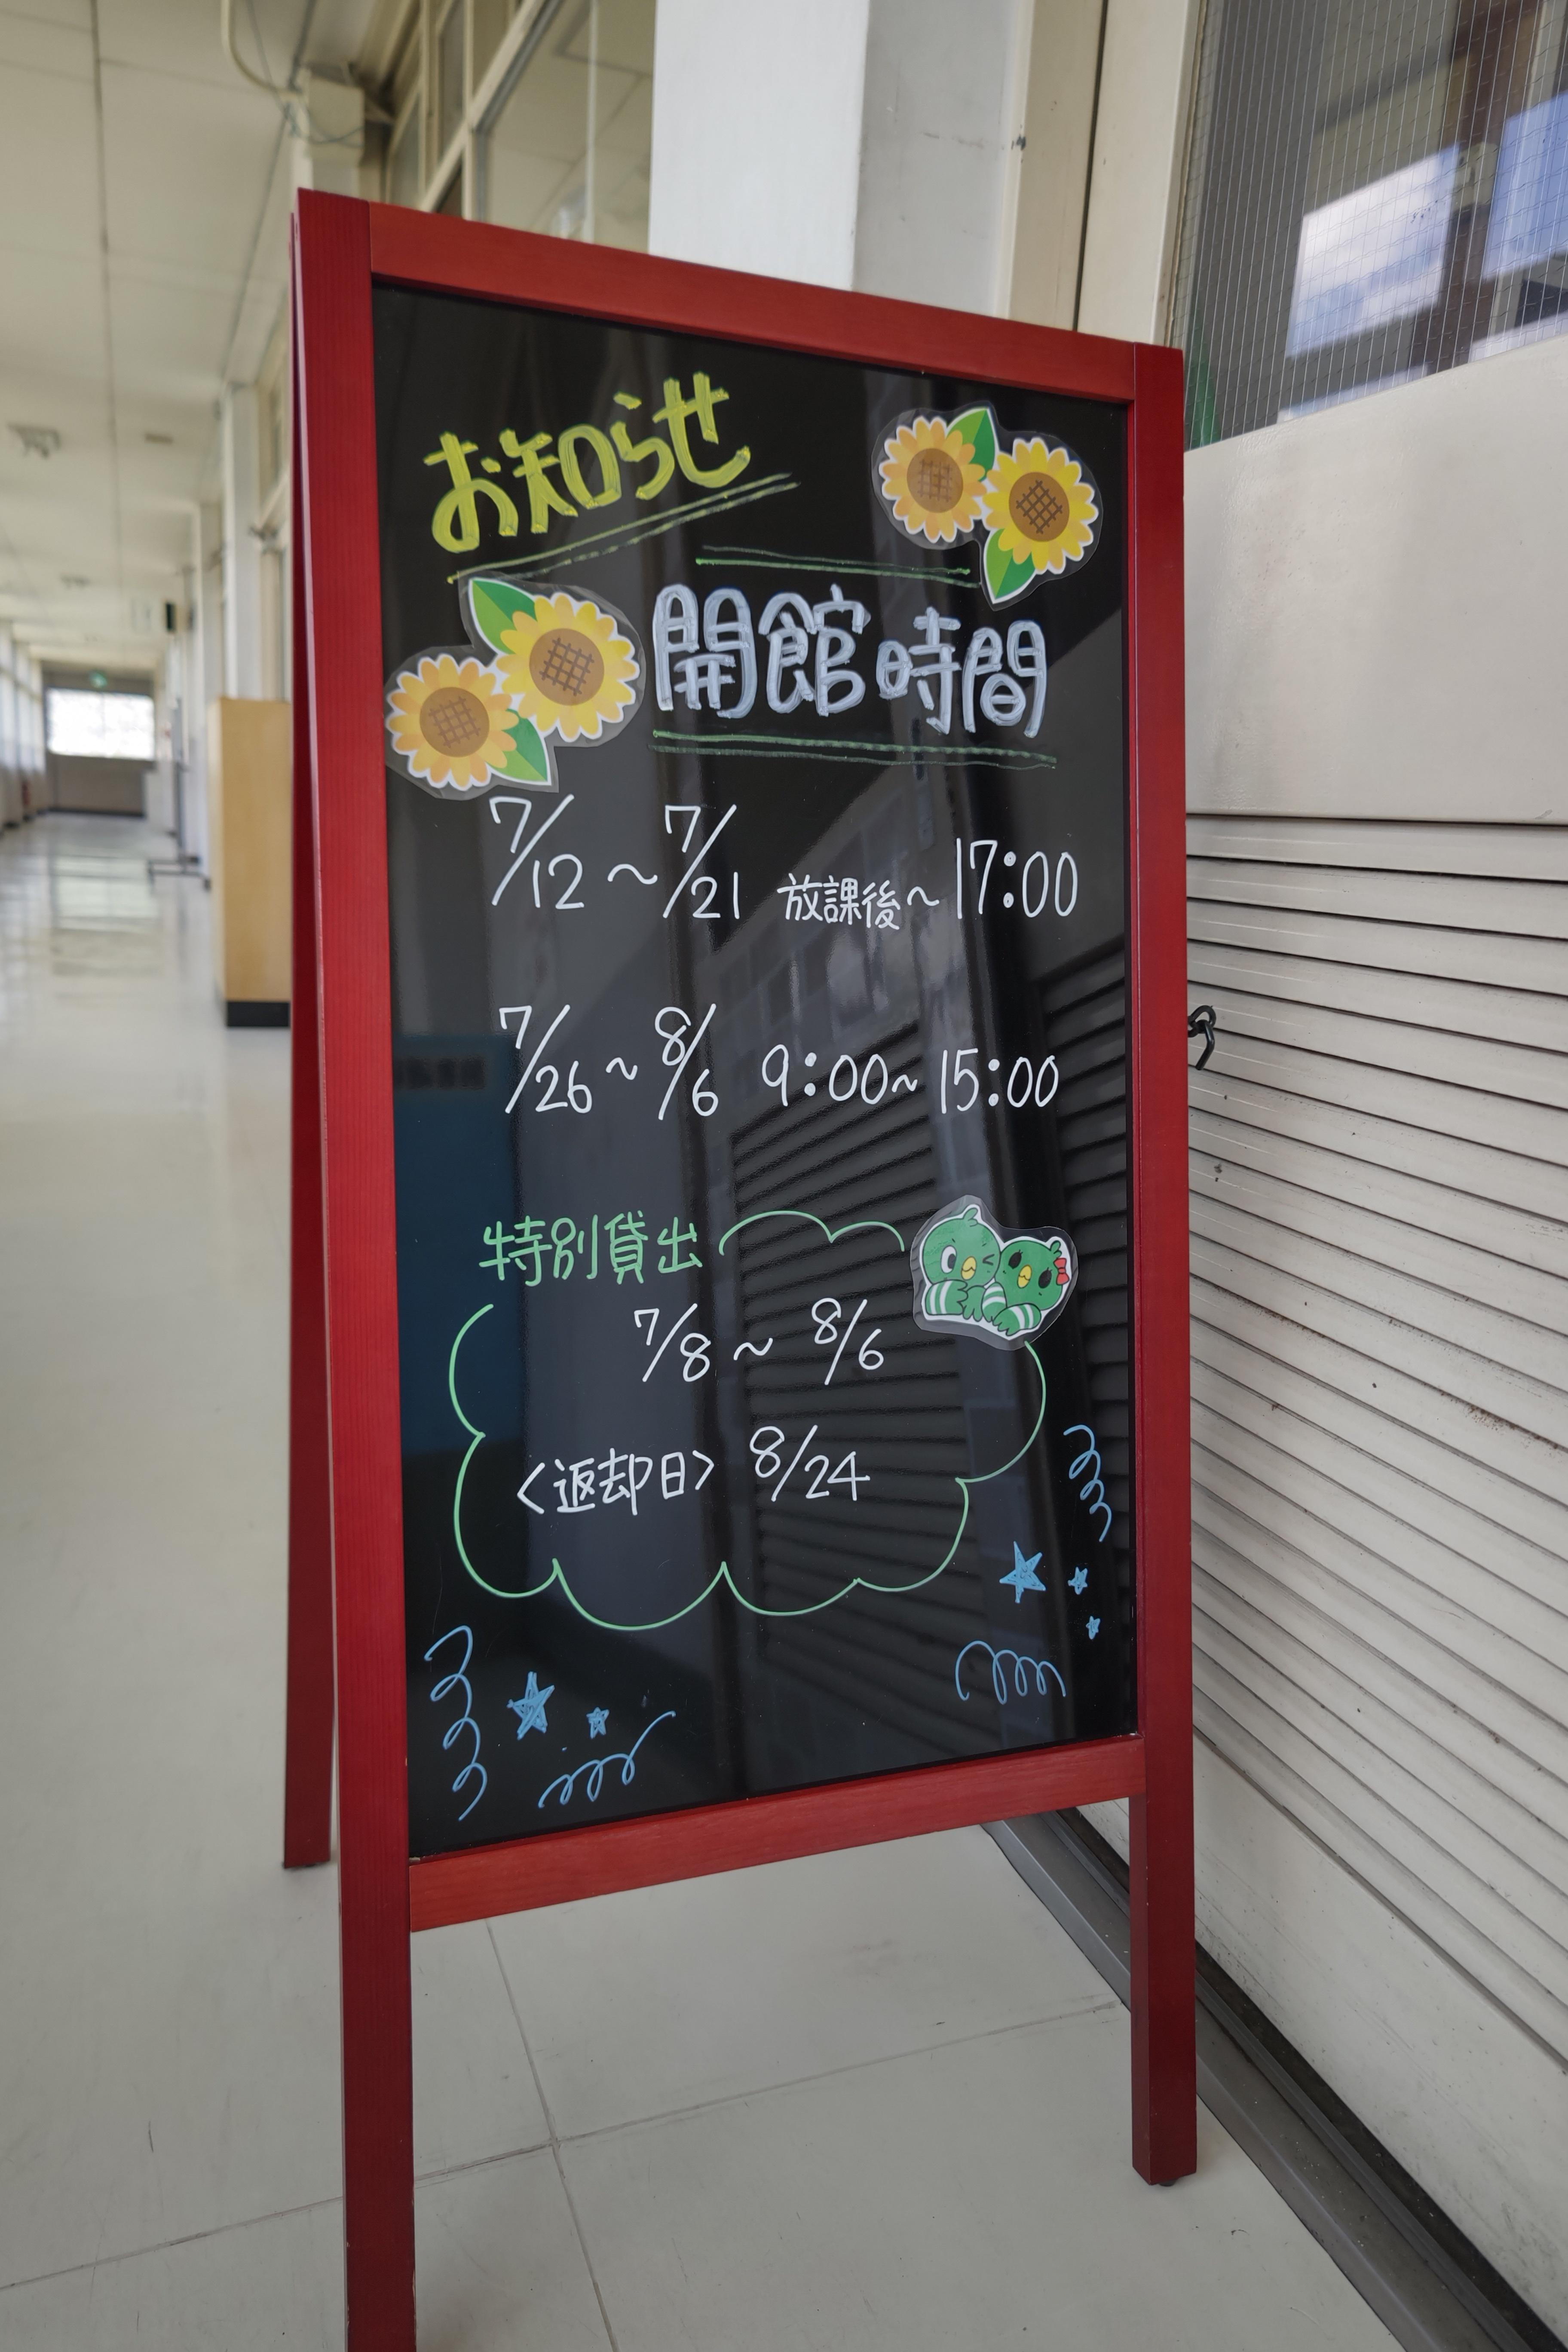 お知らせ
開館時間
7/12〜7/21 放課後〜17:00
7/26〜8/6 9:00〜15:00
特別貸出
7/8〜8/6
〈返却日〉8/24